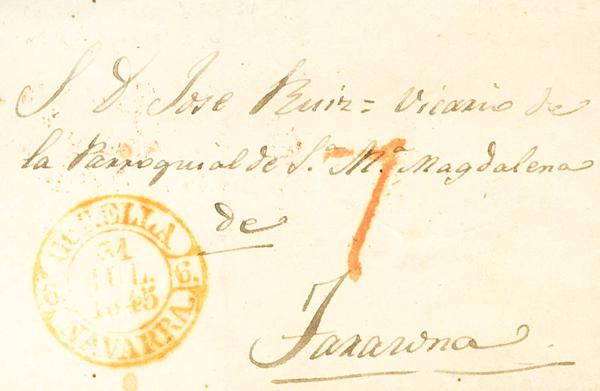 S. D. Jose Ruiz = Vicario de
la Parroquial de S.ᵃ M.ᵃ Magdalena
de
Tarazona
7
CORELLA
31
JUL.
1845
NAVARRA
6 6